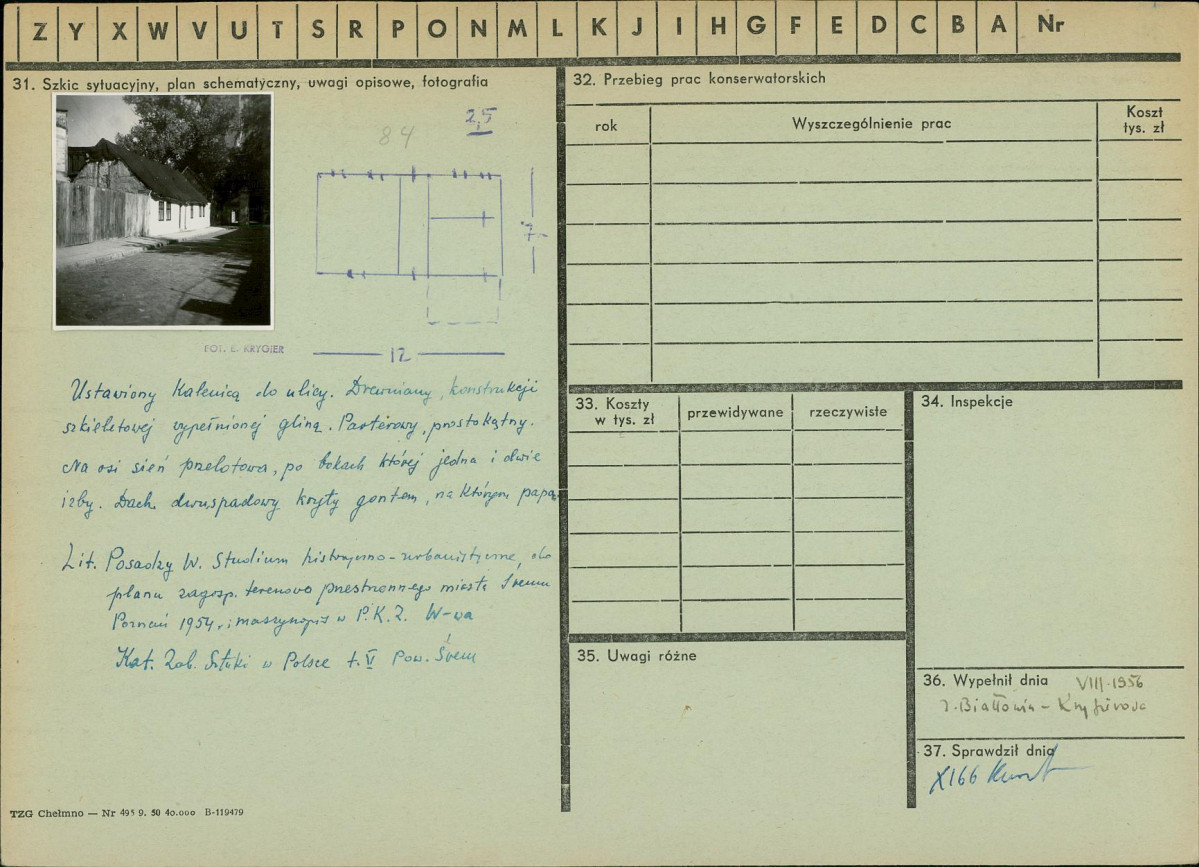 Z Y X W V U T S R P O N M L K J I H G F E D C B A Nr
31. Szkic sytuacyjny, plan schematyczny, uwagi opisowe, fotografia
84
2,5
7,-
12
FOT. E. KRYGIER
Ustawiony kalenicą do ulicy. Drewniany, konstrukcji
szkieletowej wypełnionej gliną. Parterowy, prostokątny.
Na osi sień przelotowa, po bokach której jedna i dwie
izby. Dach dwuspadowy kryty gontem, na którym papa.
Lit. Posadzy W. Studium historyczno-urbanistyczne, do
planu zagosp. terenowo przestrzennego miasta Śremu
Poznań 1954, maszynopis w P.K.Z. W-wa
Kat. Zab. Sztuki w Polsce t. V Pow. Śrem
TZG Chełmno — Nr 495 9. 50 40.000 B-119479
32. Przebieg prac konserwatorskich
rok
Wyszczególnienie prac
Koszt
tys. zł
33. Koszty
w tys. zł
przewidywane
rzeczywiste
34. Inspekcje
35. Uwagi różne
36. Wypełnił dnia VIII-1956
37. Sprawdził dnia
X166